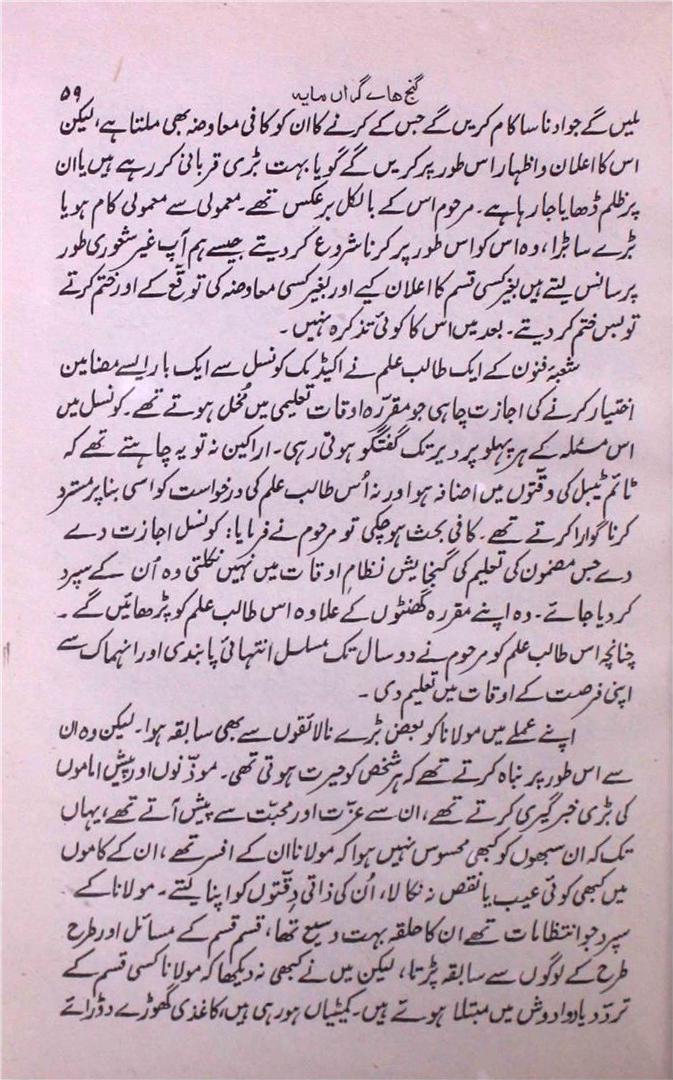 گنج ھاے گراں مایہ ۵۹
ملیں گے جو ادنا سا کام کریں گے جس کے کرنے کا ان کو کافی معاوضہ بھی ملتا ہے، لیکن
اس کا اعلان و اظہار اس طور پر کریں گے گویا بہت بڑی قربانی کر رہے ہیں یا ان
پر ظلم ڈھایا جا رہا ہے۔ مرحوم اس کے بالکل برعکس تھے۔ معمولی سے معمولی کام ہو یا
بڑے سا بڑا، وہ اس کو اس طور پر کرنا شروع کر دیتے جیسے ہم آپ غیر شعوری طور
پر سانس لیتے ہیں بغیر کسی قسم کا اعلان کیے اور بغیر کسی معاوضہ کی توقع کے اور ختم کرتے
تو بس ختم کر دیتے۔ بعد میں اس کا کوئی تذکرہ نہیں۔
شعبۂ فنون کے ایک طالب علم نے اکیڈمک کونسل سے ایک بار ایسے مضامین
اختیار کرنے کی اجازت چاہی جو مقررہ اوقات تعلیمی میں مُخل ہوتے تھے۔ کونسل میں
اس مسئلہ کے ہر پہلو پر دیر تک گفتگو ہوتی رہی۔ اراکین نہ تو یہ چاہتے تھے کہ
ٹائم ٹیبل کی دقّتوں میں اضافہ ہو اور نہ اُس طالب علم کی درخواست کو اسی بنا پر مسترد
کرنا گوارا کرتے تھے۔ کافی بحث ہو چکی تو مرحوم نے فرمایا: کونسل اجازت دے
دے جس مضمون کی تعلیم کی گنجایش نظامِ اوقات میں نہیں نکلتی وہ اُن کے سپرد
کر دیا جائے۔ وہ اپنے مقررہ گھنٹوں کے علاوہ اس طالب علم کو پڑھائیں گے۔
چنانچہ اس طالب علم کو مرحوم نے دو سال تک مسلسل انتہائی پابندی اور انہماک سے
اپنی فرصت کے اوقات میں تعلیم دی۔
اپنے عملے میں مولانا کو بعض بڑے نالائقوں سے بھی سابقہ ہوا۔ لیکن وہ ان
سے اس طور پر نباہ کرتے تھے کہ ہر شخص کو حیرت ہوتی تھی۔ موذّنوں اور پیش اماموں
کی بڑی خبرگیری کرتے تھے، ان سے عزّت اور محبّت سے پیش آتے تھے، یہاں
تک کہ ان سبھوں کو کبھی محسوس نہیں ہوا کہ مولانا ان کے افسر تھے، ان کے کاموں
میں کبھی کوئی عیب یا نقص نہ نکالا، اُن کی ذاتی دِقّتوں کو اپنا لیتے۔ مولانا کے
سپرد جو انتظامات تھے ان کا حلقہ بہت وسیع تھا، قسم قسم کے مسائل اور طرح
طرح کے لوگوں سے سابقہ پڑتا، لیکن میں نے کبھی نہ دیکھا کہ مولانا کسی قسم کے
تردّد یا دوادوش میں مبتلا ہوتے ہیں۔ کمیٹیاں ہو رہی ہیں، کاغذی گھوڑے دوڑائے